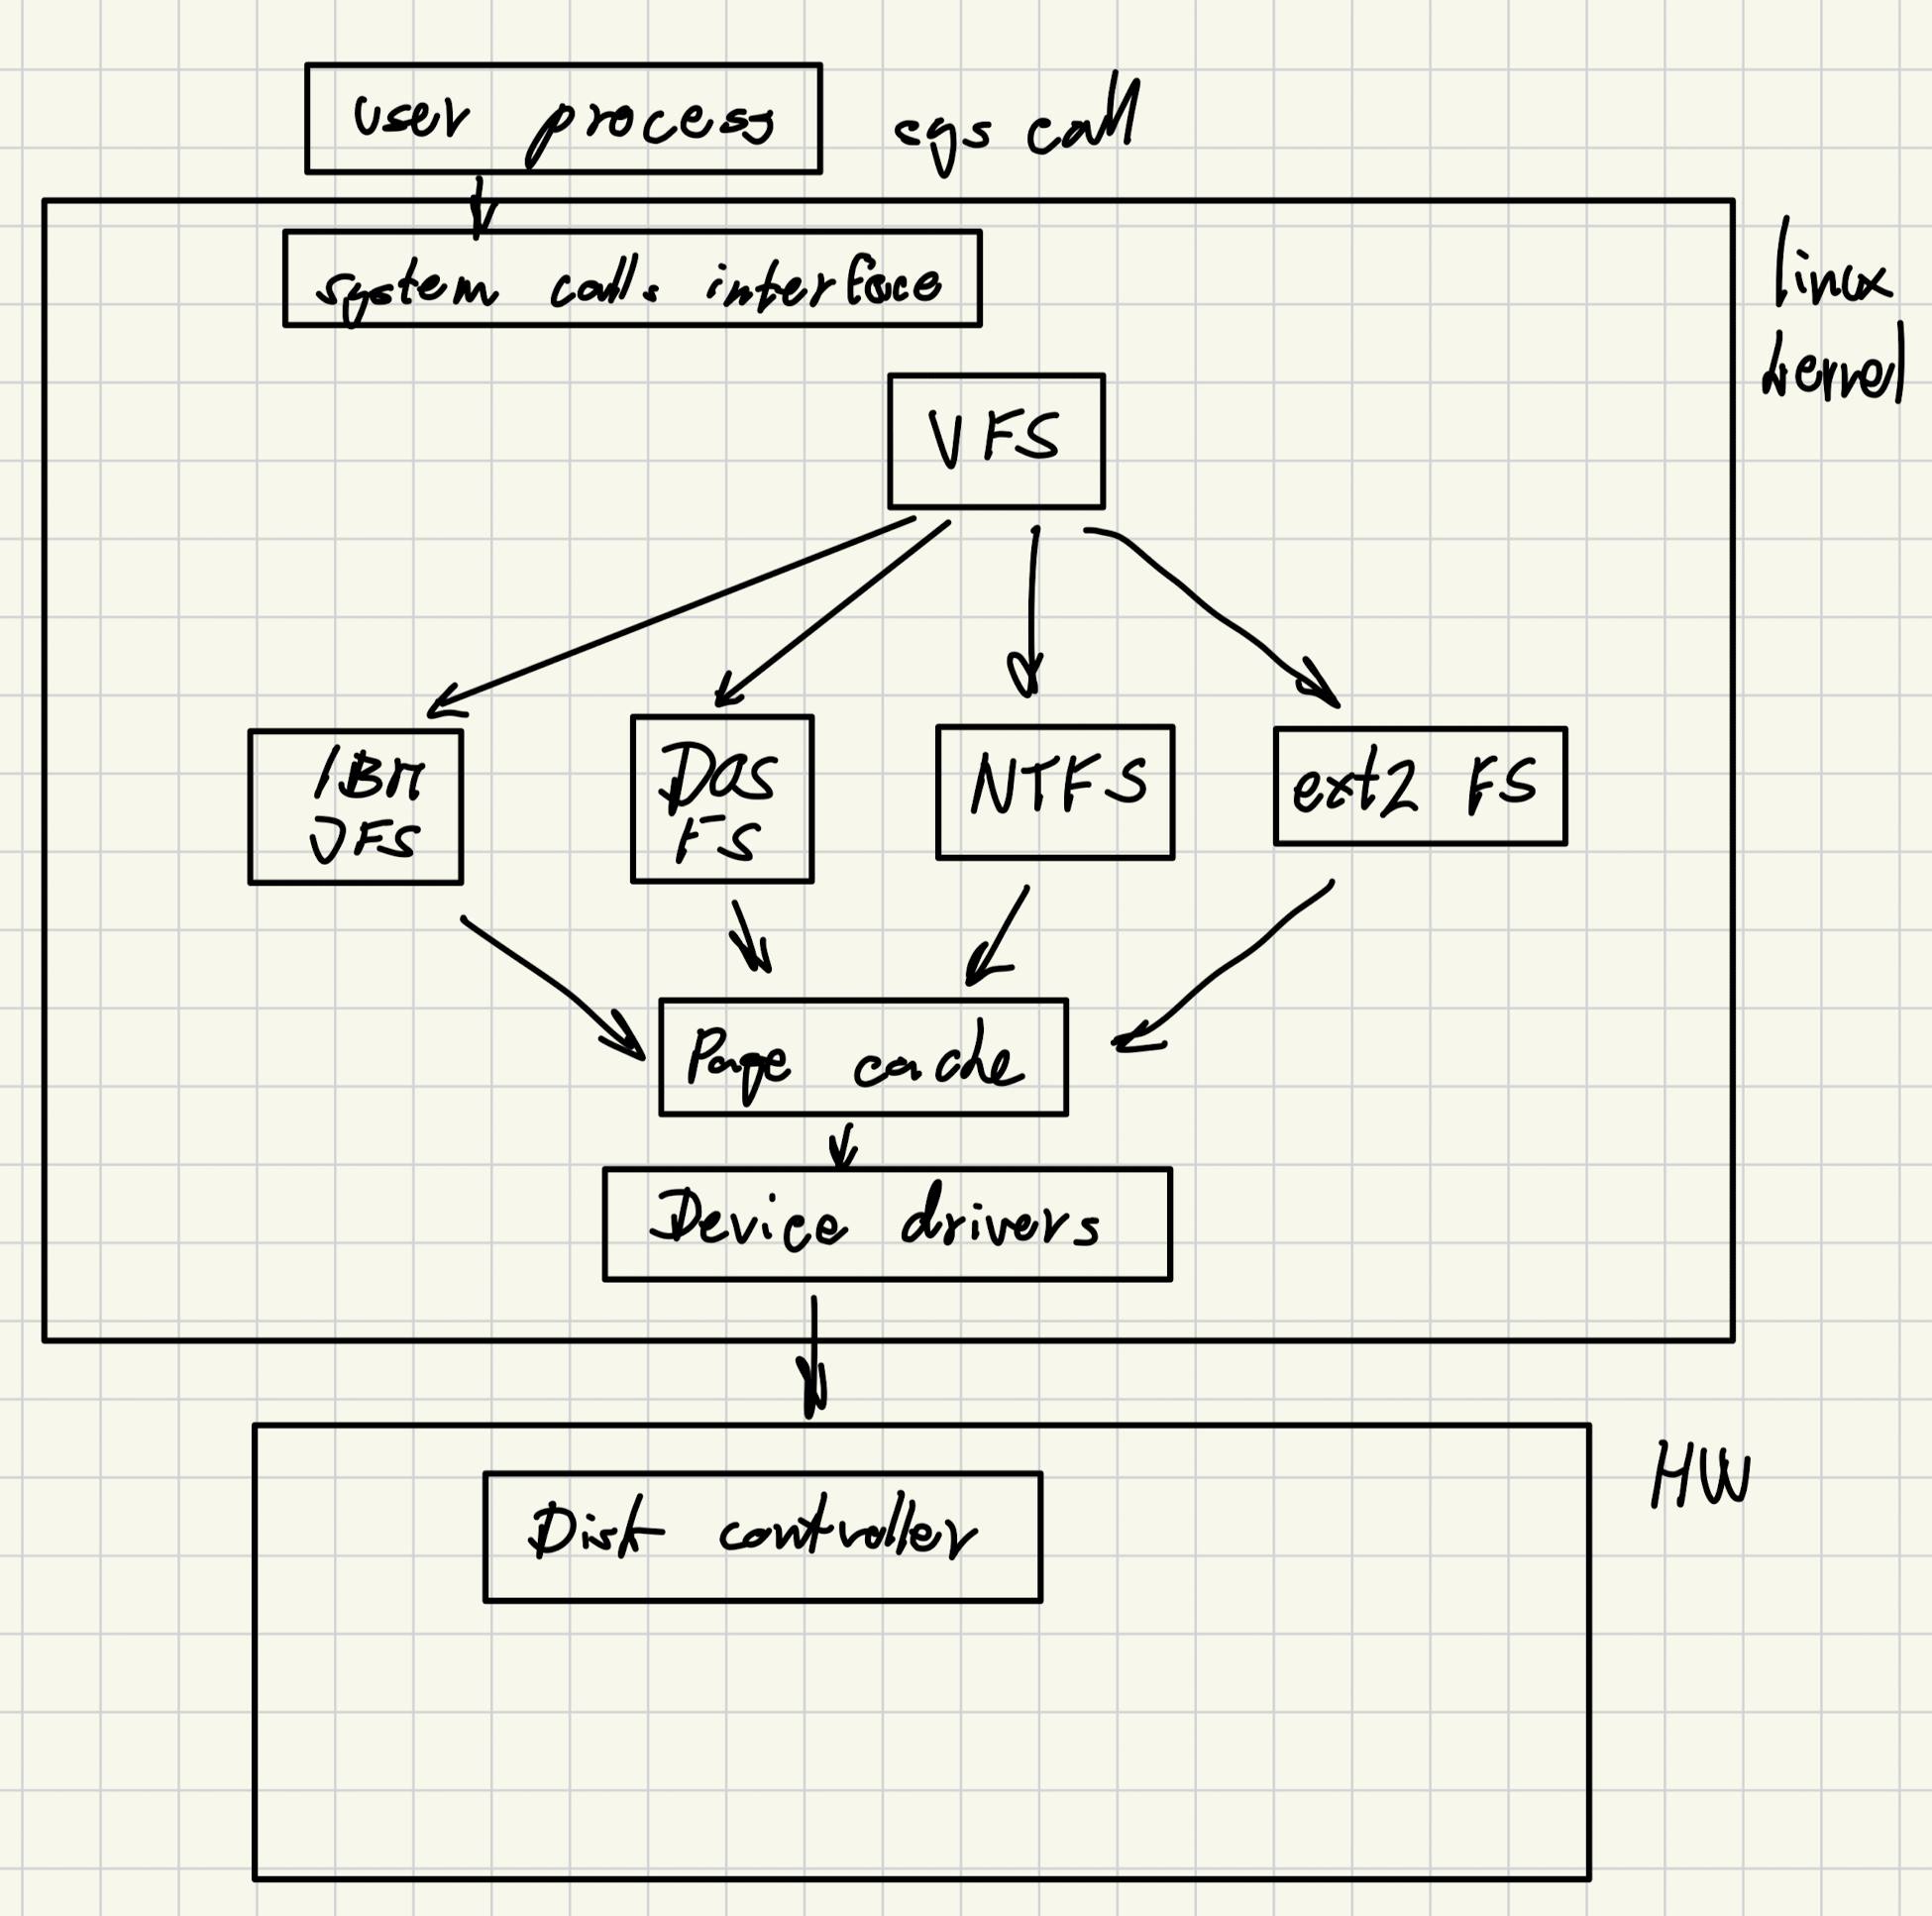 user process
sys call
system calls interface
linux
kernel
VFS
IBM
JFS
DOS
FS
NTFS
ext2 FS
Page cache
Device drivers
HW
Disk controller